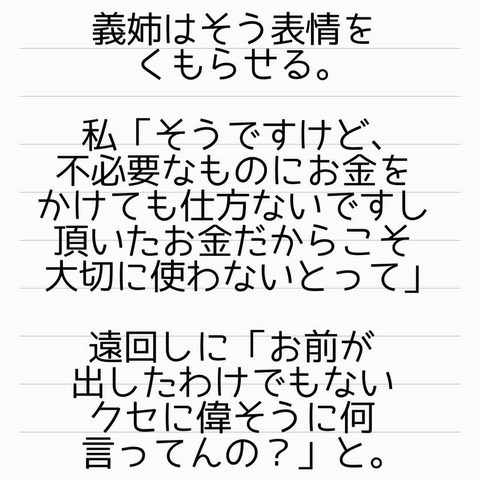 義姉はそう表情を
くもらせる。
私「そうですけど、
不必要なものにお金を
かけても仕方ないですし
頂いたお金だからこそ
大切に使わないとって」
遠回しに「お前が
出したわけでもない
クセに偉そうに何
言ってんの？」と。